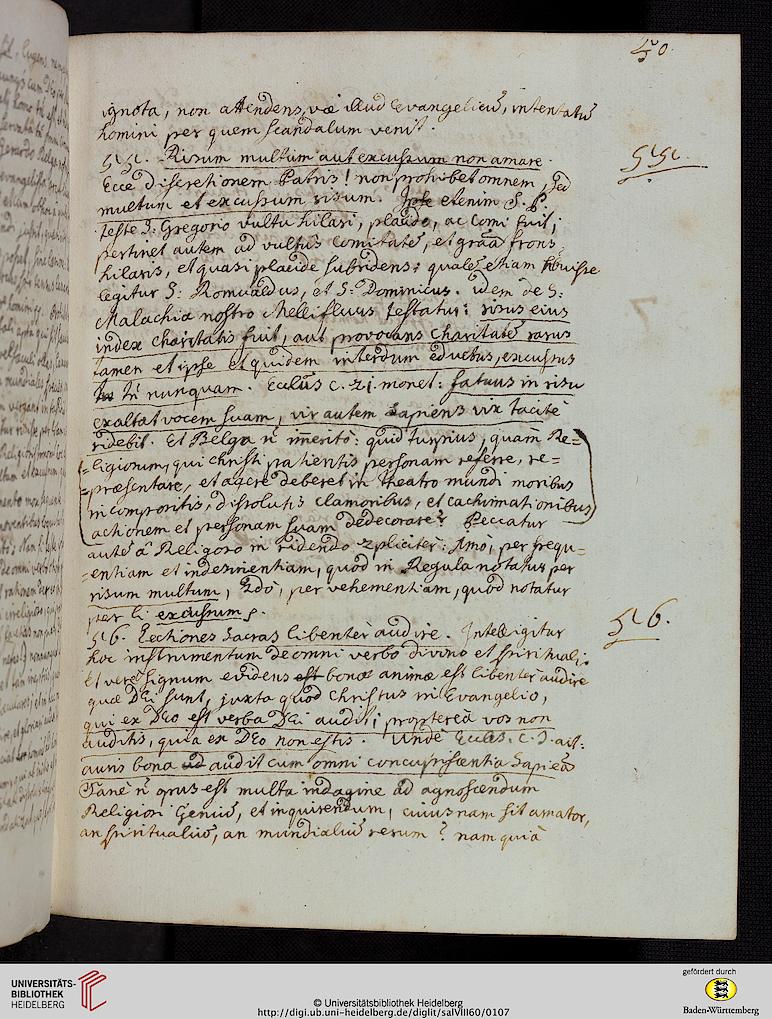 50.
ignota, non attendens, væ illud Evangelicũ, intentatũ
homini per quem scandalum venit.
55. Risum multum aut excussum non amare.
Ecce discretionem Patris! non prohibet omnem, sed
multum et excussum risum. Ipse etenim S. P.
teste S: Gregorio vultu hilari, placido, ac comi fuit;
pertinet autem ad vultus comitatẽ, et grãa frons
hilaris, et quasi placide subridens: qualẽ etiam habuisse
legitur S: Romualdus, et S: Dominicus. idem de S:
Malachia nostro Mellifluus testatur: risus eius
index charitatis fuit, aut provocans charitatẽ rarus
tamen et ipse et quidem interdum eductus, excussus
nunquam. Ecclūs c. 21. monet: fatuus in risu
exaltat vocem suam, vir autem sapiens vix tacitè
ridebit. Et Belga ñ imeritò: quid turpius, quàm Re=
=ligiosum, qui Christi patientis personam referre, re=
=præsentare, et agere deberet in theatro mundi moribus
incompositis, dissolutis clamoribus, et cachinnationibus
actionem et personam suam dedecorare? Peccatur
autẽ à Religioso in ridendo 2pliciter: Imò, per frequ=
=entiam et indesinentiam, quod in Regula notatur per
risum multum, 2dò, per vehementiam, quod notatur
per li excussum.
55.
56. Lectiones sacras libenter audire. Intelligitur
56.
hoc instrumentum de omni verbo divino et spirituali.
Et verè signum evidens est bonæ animæ est libenter audire
quæ DEi sunt, juxta quod Christus in Evangelio,
qui ex DEo est verba DEi audit; proptereà vos non
auditis, quia ex DEo non estis. Undè Ecclūs. c. 3. ait:
auris bona audit cum omni concupiscentia sapieñã
Sanè ñ opus est multa indagine ad agnoscendum
Religiosi Geniũ, et inquirendum, cuiusnam sit amator,
an spiritualiũ, an mundialiũ rerum? nam quià
UNIVERSITÄTS-
BIBLIOTHEK
HEIDELBERG
© Universitätsbibliothek Heidelberg
http://digi.ub.uni-heidelberg.de/diglit/salVIII60/0107
gefördert durch
Baden-Württemberg